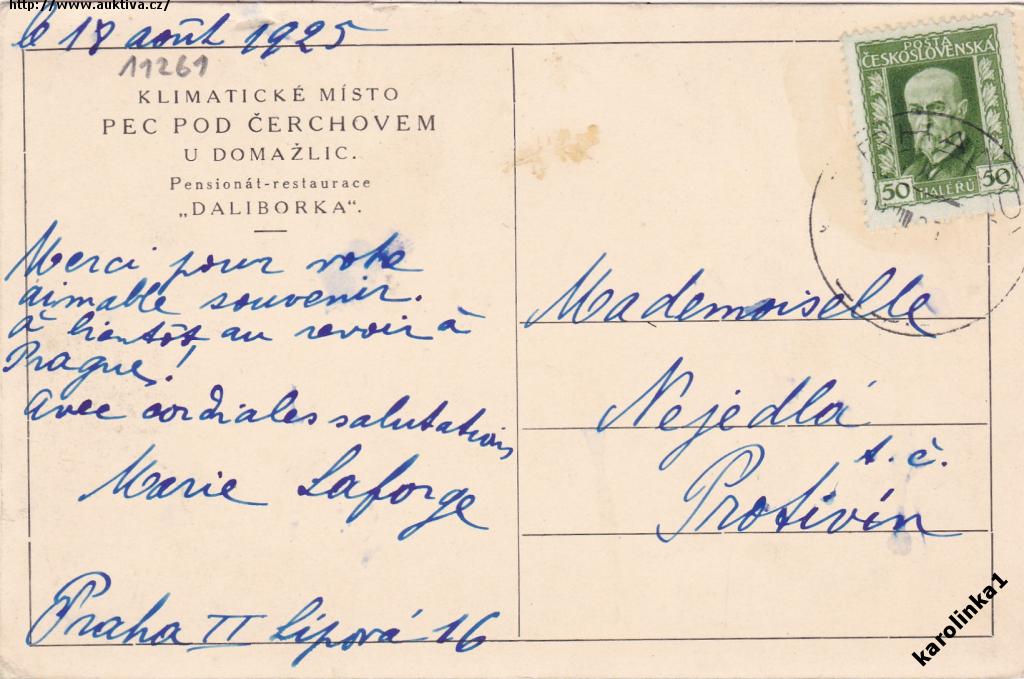 http://www.auktiva.cz/
le 18 août 1925
11261
KLIMATICKÉ MÍSTO
PEC POD ČERCHOVEM
U DOMAŽLIC.
Pensionát-restaurace
„DALIBORKA“.
Merci pour votre
aimable souvenir.
à bientôt au revoir à
Prague!
Avec cordiales salutations
Marie Laforge
Praha II Lípová 16
POŠTA
ČESKOSLOVENSKÁ
50 HALÉŘŮ 50
Mademoiselle
Nejedlá
t. č.
Protivín
karolinka1